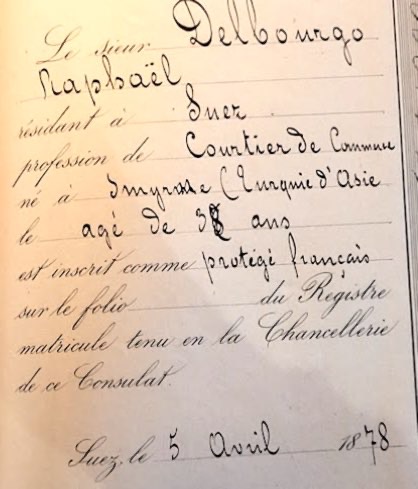 Le sieur Delbourgo
Raphaël
résidant à Suez
profession de Courtier de Commerce
né à Smyrne (Turquie d'Asie
le agé de 38 ans
est inscrit comme protégé français
sur le folio du Régistre
matricule tenu en la Chancellerie
de ce Consulat.
Suez, le 5 Avril 1878